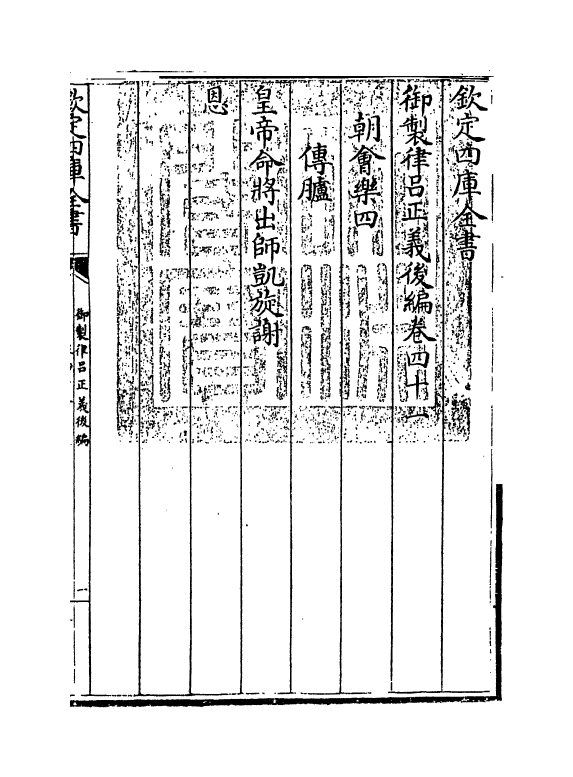 欽定四庫全書
御製律吕正義後編卷四十一
朝會樂四
傳臚
皇帝命將出師凱旋謝
恩
欽定四庫全書
御製律吕正義後編
一